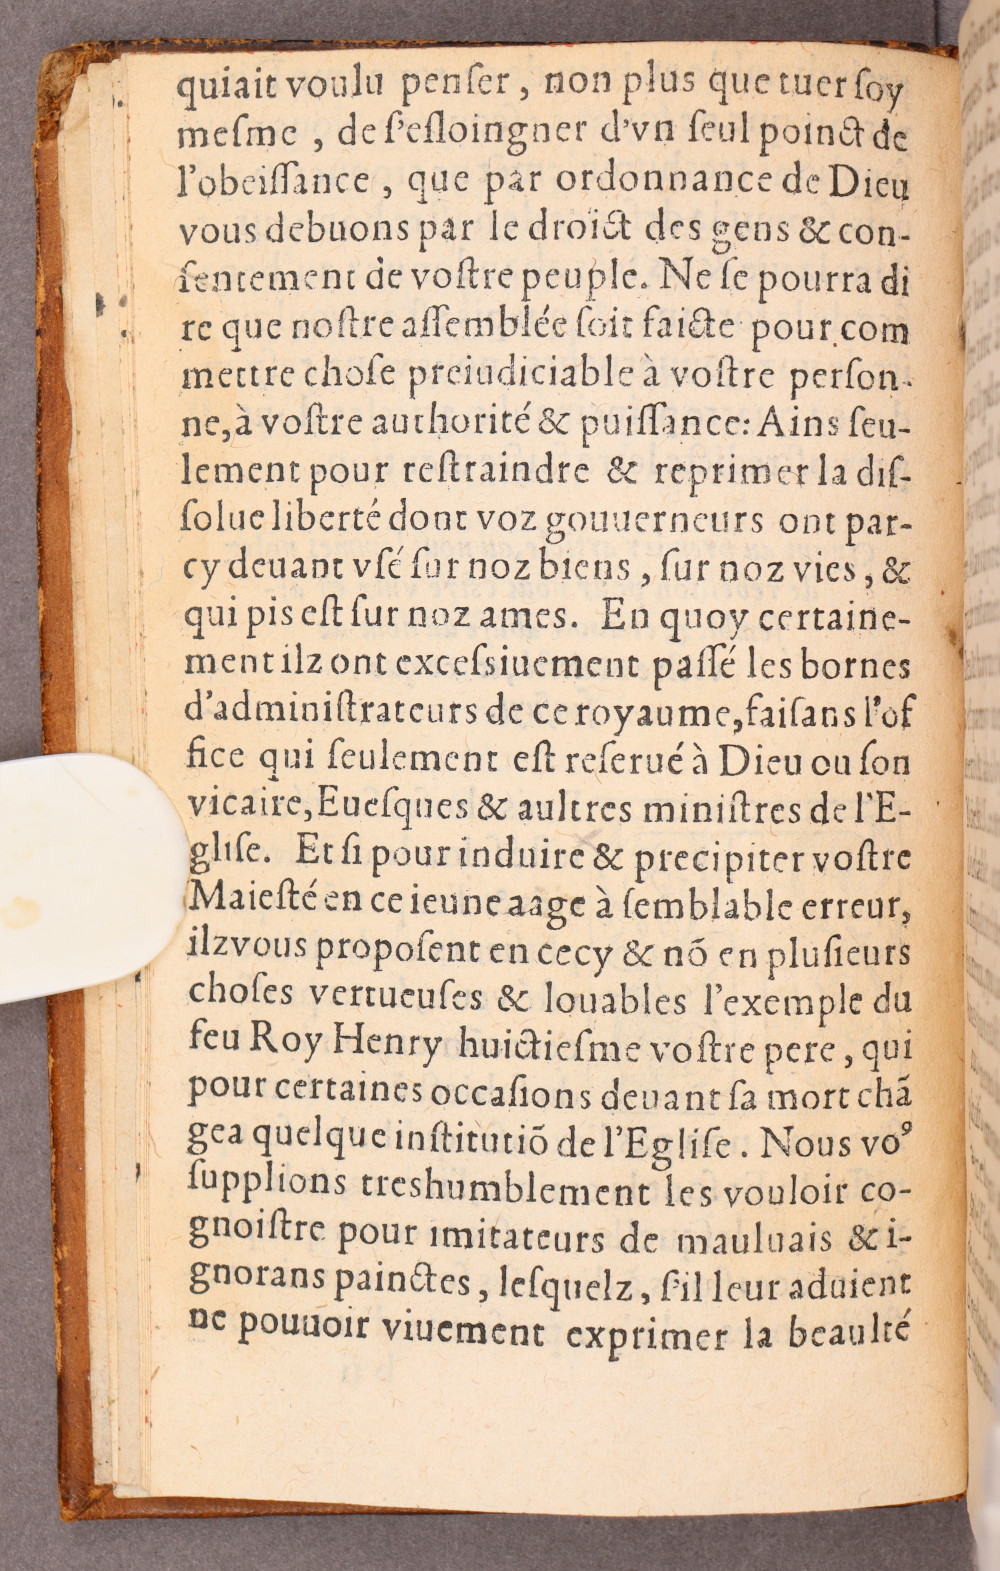 quiait voulu penſer, non plus que tuer ſoy
meſme, de ſ'eſloingner d'vn ſeul poinct de
l'obeiſſance, que par ordonnance de Dieu
vous debuons par le droict des gens & con-
ſentement de voſtre peuple. Ne ſe pourra di
re que noſtre aſſemblée ſoit faicte pour com
mettre choſe preiudiciable à voſtre perſon-
ne, à voſtre authorité & puiſſance: Ains ſeu-
lement pour reſtraindre & reprimer la diſ-
ſolue liberté dont voz gouuerneurs ont par-
cy deuant vſé ſur noz biens, ſur noz vies, &
qui pis eſt ſur noz ames. En quoy certaine-
ment ilz ont exceſsiuement paſſé les bornes
d'adminiſtrateurs de ce royaume, faiſans l'of
fice qui ſeulement eſt reſerué à Dieu ou ſon
vicaire, Eueſques & aultres miniſtres de l'E-
gliſe. Et ſi pour induire & precipiter voſtre
Maieſté en ce ieune aage à ſemblable erreur,
ilz vous propoſent en cecy & nõ en pluſieurs
choſes vertueuſes & louables l'exemple du
feu Roy Henry huictieſme voſtre pere, qui
pour certaines occaſions deuant ſa mort chã
gea quelque inſtitutiõ de l'Egliſe. Nous voꝰ
ſupplions treshumblement les vouloir co-
gnoiſtre pour imitateurs de mauluais & i-
gnorans painctes, leſquelz, ſ'il leur aduient
ne pouuoir viuement exprimer la beaulté